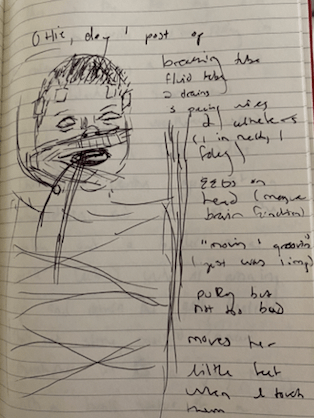 Ottie, day 1 post op
breathing tube
fluid tube
2 drains
3 pacing wires
2 catheters
(1 in neck, 1
foley)
EEGs on
head (
brain function)
"moving &
just was limp)
puffy but
not too bad
moves her
little feet
when I touch
them